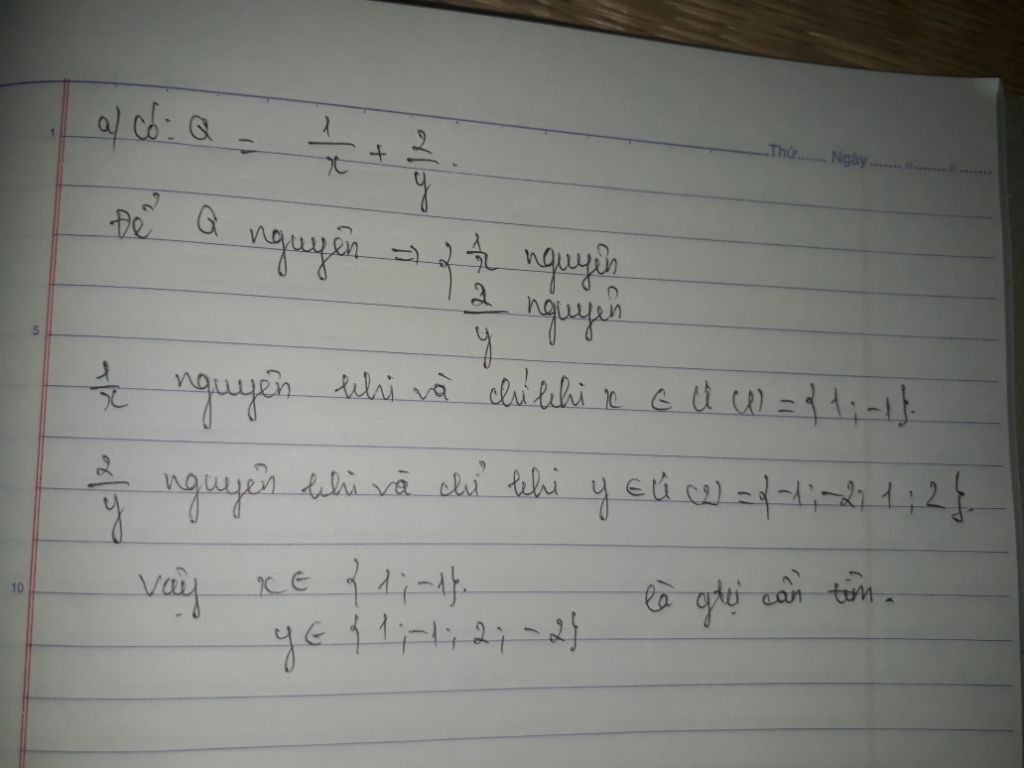 1
Thứ....... Ngày ....... o ....... o .......
a) Có: Q = 1/x + 2/y.
Để Q nguyên => { 1/x nguyên
2/y nguyên
5
1/x nguyên khi và chỉ khi x ∈ Ư (1) = {1; -1}.
2/y nguyên khi và chỉ khi y ∈ Ư (2) = {-1; -2; 1; 2}.
10
Vậy x ∈ {1; -1}. là gtrị cần tìm.
y ∈ {1; -1; 2; -2}